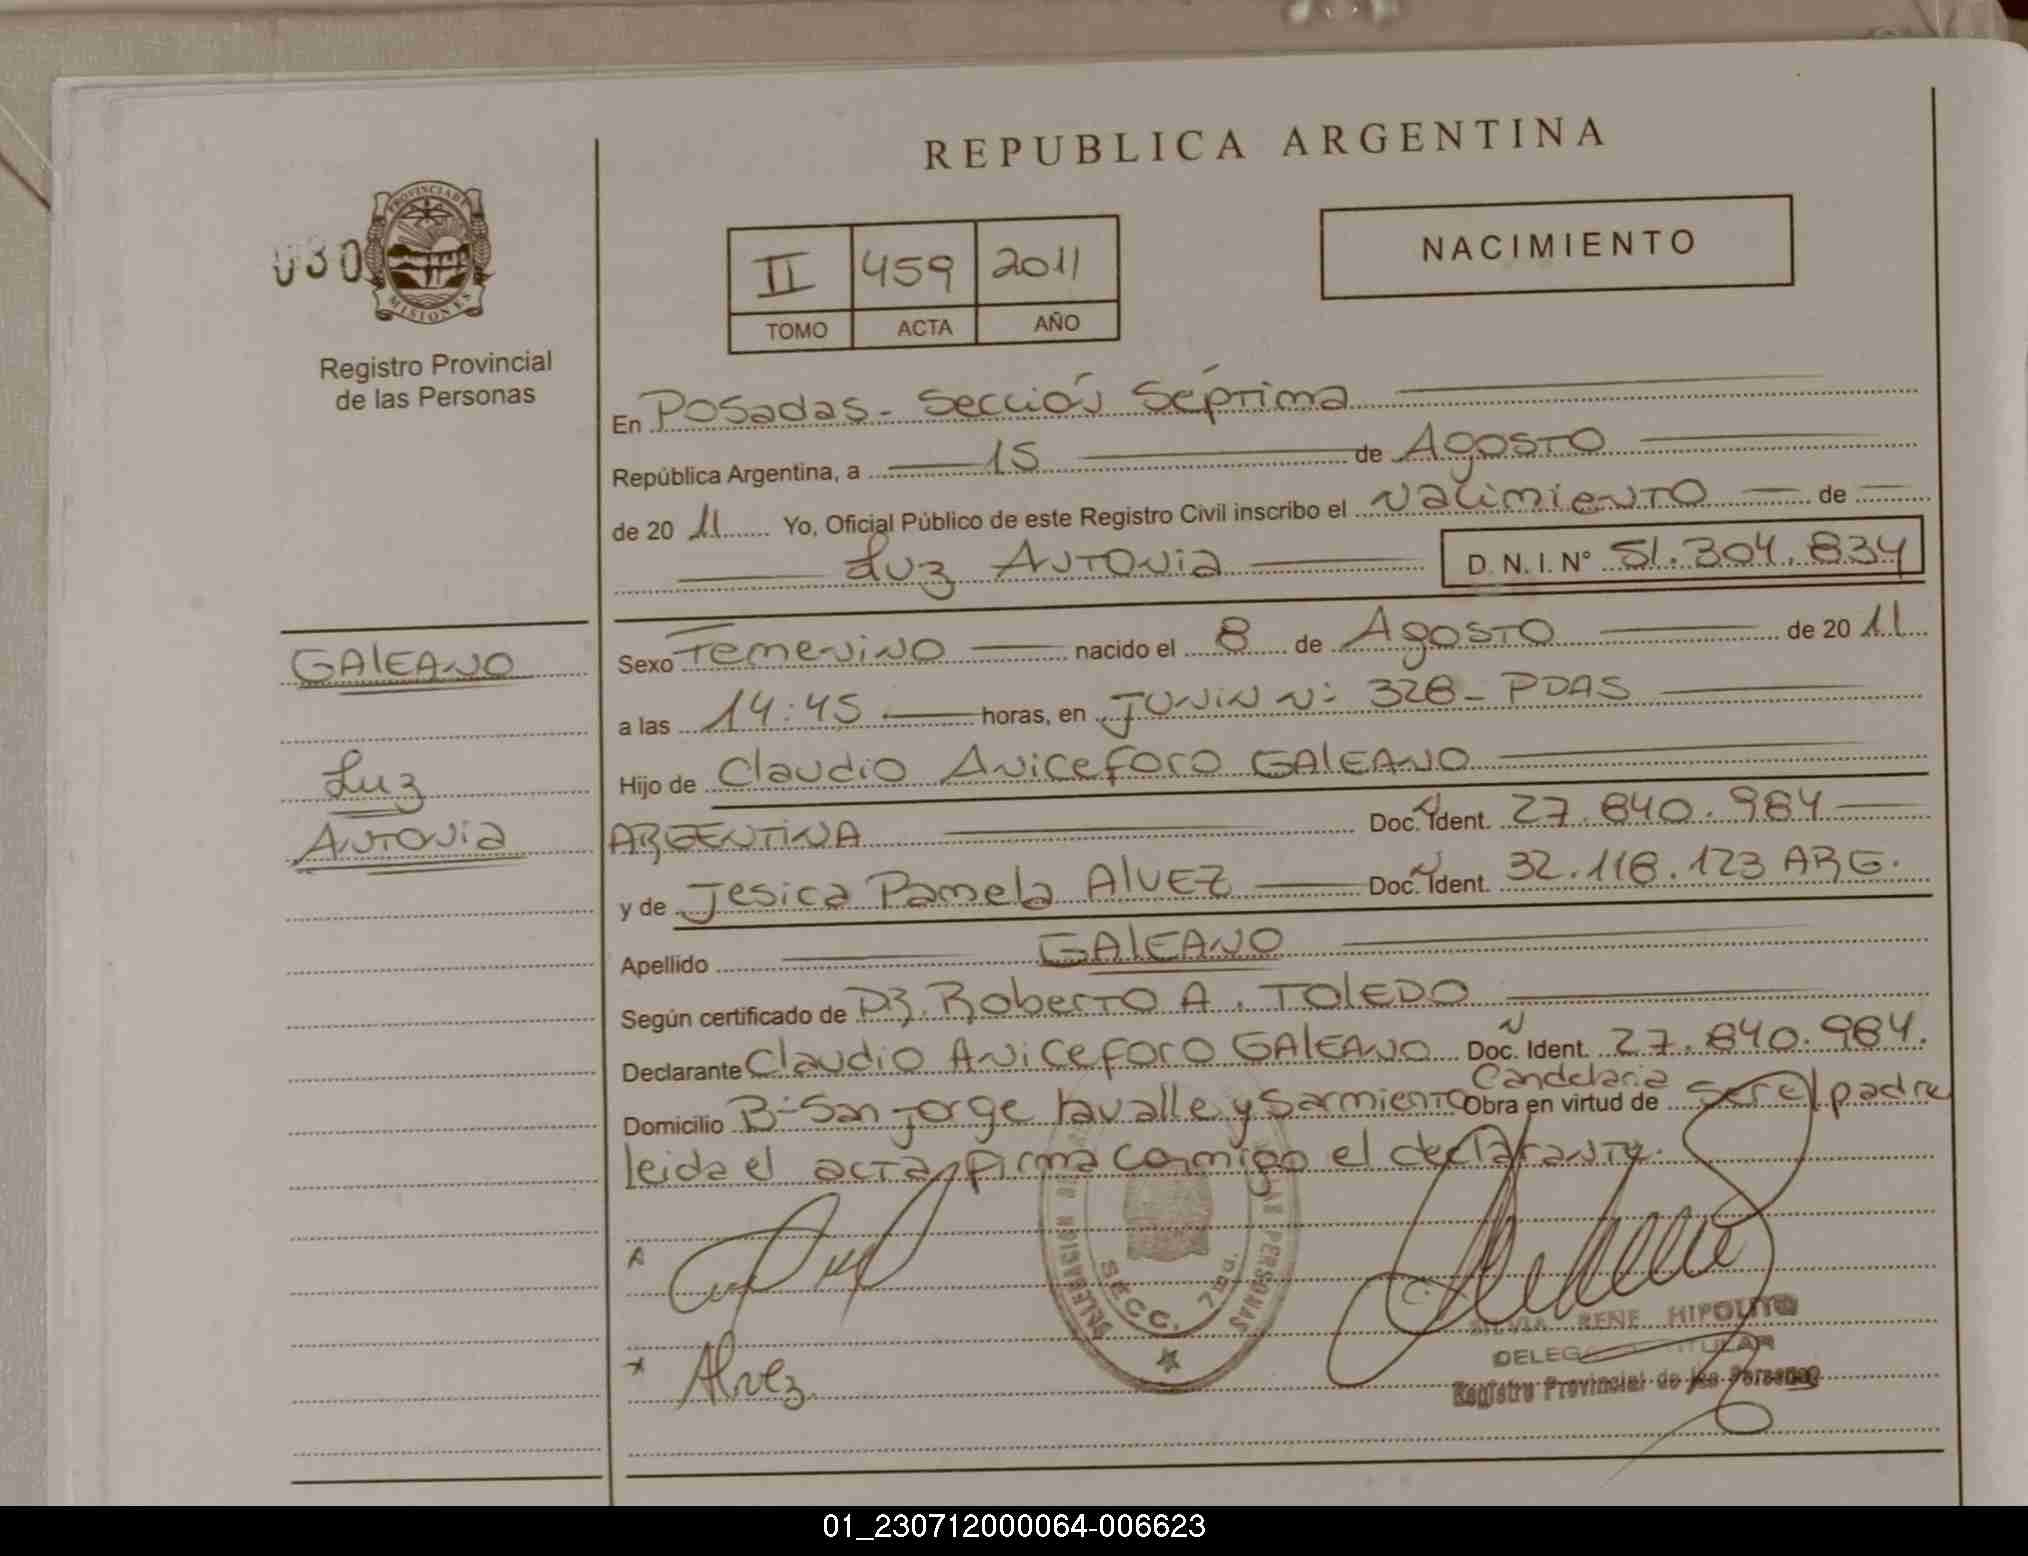 REPUBLICA ARGENTINA
030
PROVINCIA DE
MISIONES
Registro Provincial
de las Personas
II 459 2011
TOMO ACTA AÑO
NACIMIENTO
En Posadas - Sección Séptima
República Argentina, a 15 de Agosto
de 20 11 Yo, Oficial Público de este Registro Civil inscribo el Nacimiento de
Luz Antonia D. N. I. N° 51.304.834
GALEANO
Luz
Antonia
Sexo Femenino nacido el 8 de Agosto de 20 11
a las 14:45 horas, en Junin N: 328 - PDAS
Hijo de Claudio Aniceforo GALEANO
ARGENTINA Doc. N Ident. 27.840.984
y de Jesica Pamela ALVEZ Doc. N Ident. 32.118.123 ARG.
Apellido GALEANO
Según certificado de DR. Roberto A. TOLEDO
Declarante Claudio Aniceforo GALEANO Doc. N Ident. 27.840.984.
Domicilio B: San Jorge Lavalle y Sarmiento Candelaria Obra en virtud de ser el padre
leida el acta firma conmigo el declarante.
Alvez
SECC. 7ma.
DELEGACION
PERSONAS
SILVIA RENE HIPOLITO
TITULAR
Registro Provincial de las Personas
01_230712000064-006623